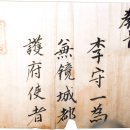 教旨
李守一為
兼鏡城都
護府使者